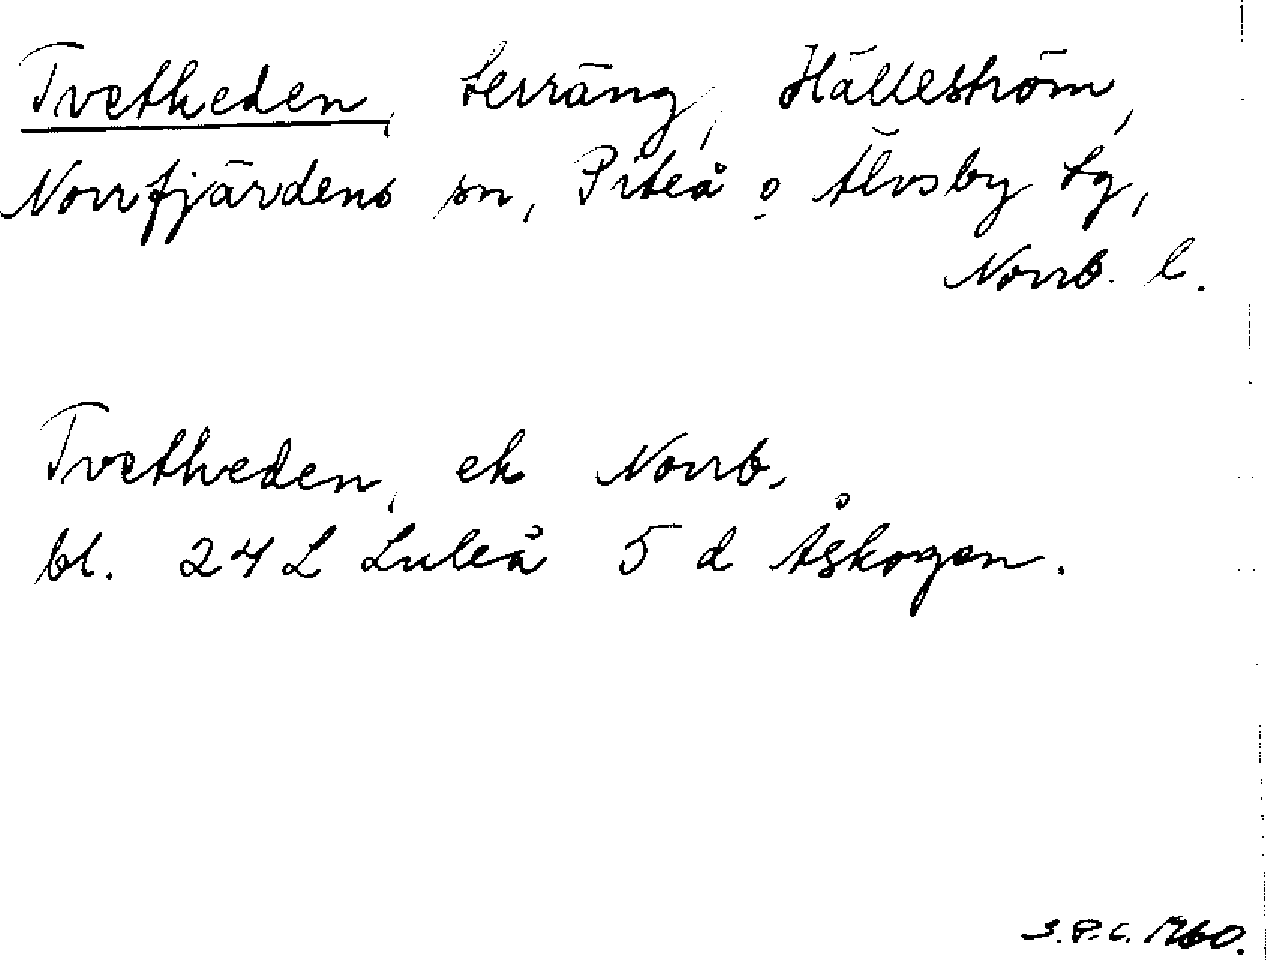 Tvetheden, terräng, Hälleström,
Norrfjärdens sn, Piteå o Älvsby tg,
Norrb. l.
Tvetheden, ek Norrb.
bl. 24 L Luleå 5 d Åskogen.
1960.